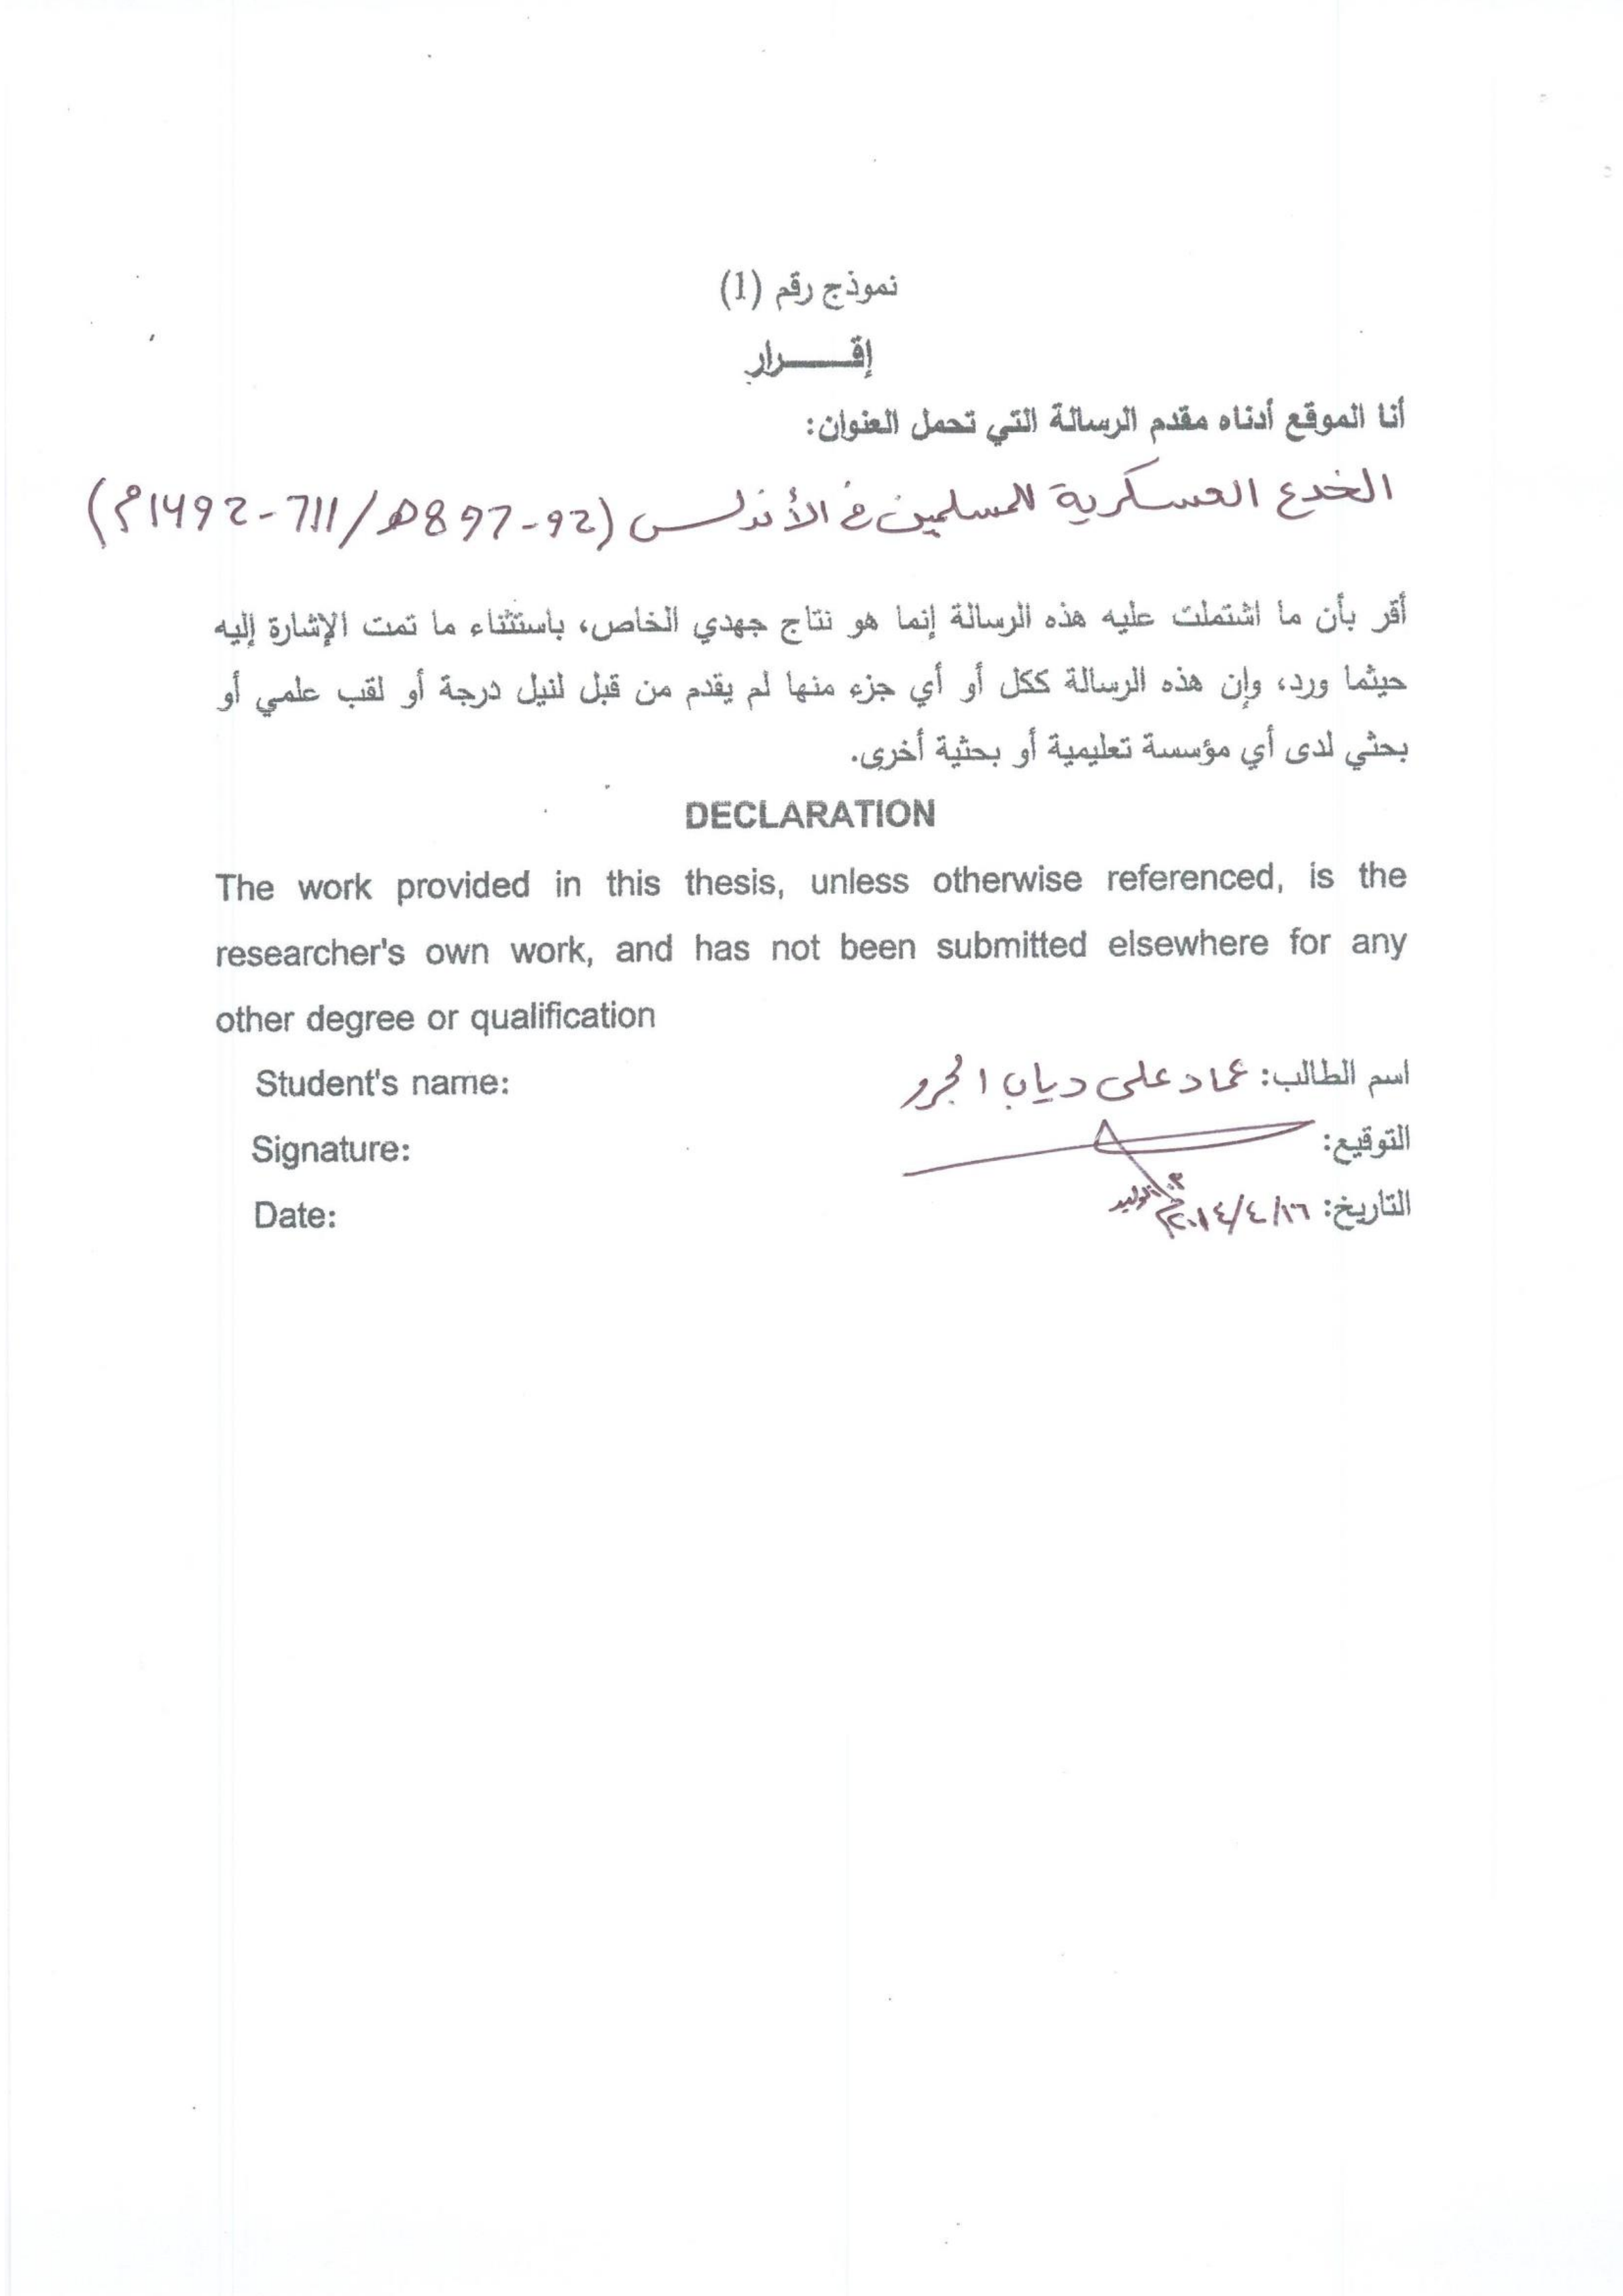 نموذج رقم (1)
إقـــــرار
أنا الموقع أدناه مقدم الرسالة التي تحمل العنوان:
الخدع العسكرية للمسلمين في الأندلس (92-897هـ/711-1492م)
أقر بأن ما اشتملت عليه هذه الرسالة إنما هو نتاج جهدي الخاص، باستثناء ما تمت الإشارة إليه
حيثما ورد، وإن هذه الرسالة ككل أو أي جزء منها لم يقدم من قبل لنيل درجة أو لقب علمي أو
بحثي لدى أي مؤسسة تعليمية أو بحثية أخرى.
DECLARATION
The work provided in this thesis, unless otherwise referenced, is the
researcher's own work, and has not been submitted elsewhere for any
other degree or qualification
Student's name: اسم الطالب: عماد علي دياب الجرو
Signature: التوقيع:
Date: التاريخ: ١٦/٤/٢٠١٤م